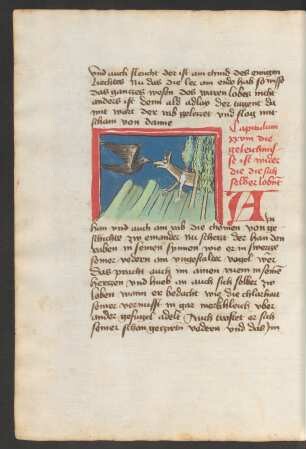 vnd auch fleucht der ist am chind des ewigen
liechtes Nu das die ler am endt hab so wisse
das gantzes wesen des waren lobes nicht
anders ist denn als adlas der tugent da
mit wart der rab gelezet vnd flog mit
scham von danne
Capitulum
xxviii die
geleichnuss
se ist wider
die die sich
selber lobent
Ain
han vnd auch am rab die chomen von ge
schichte zw einander Nu schetzt der han den
raben in seinen synnen wie er in swertze
seiner vedern am vngestalter vogel wer
Das pracht auch im ainen ruem in seine
hertzen vnd hueb an auch sich selber zw
loben wann er bedacht wie die chlarhait
seiner vernufft in gar merkleich vber
ander gefugel adelt Auch trostet er sich
seiner schon gezierten vedern vnd das im